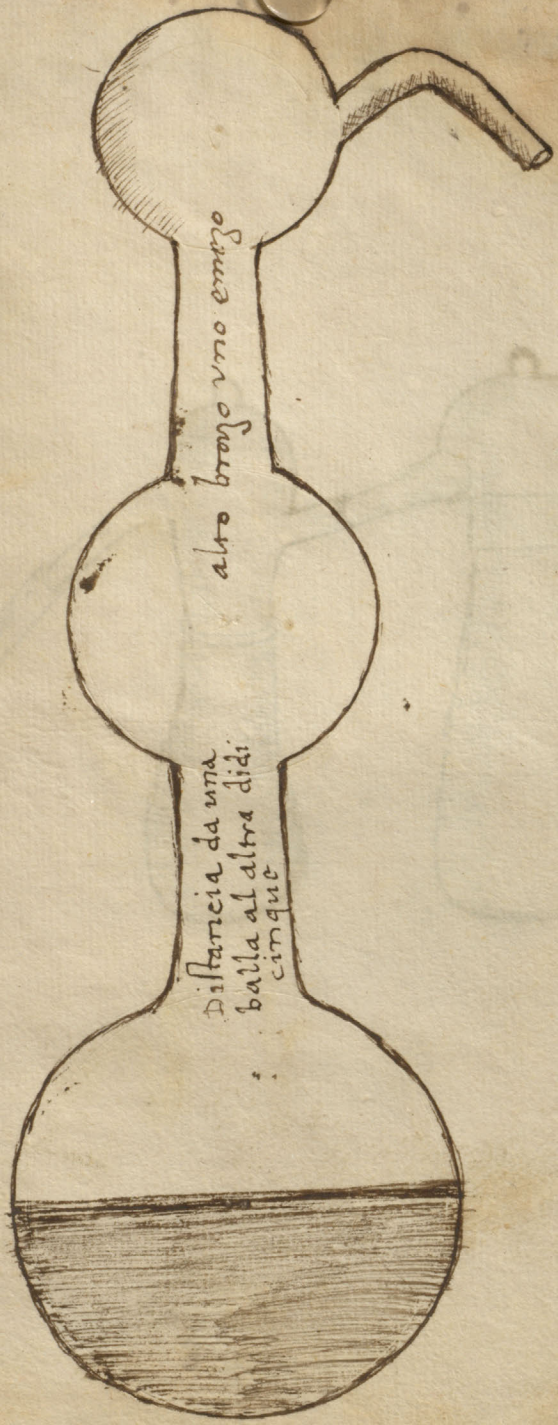 alto brazo vno e mezo
Distancia da una
balla al altra didi
cinque